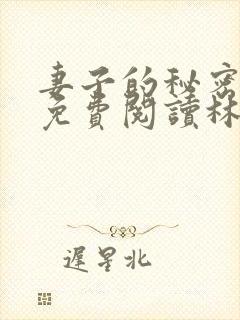 妻子的秘密
免費閱讀林
遲星北